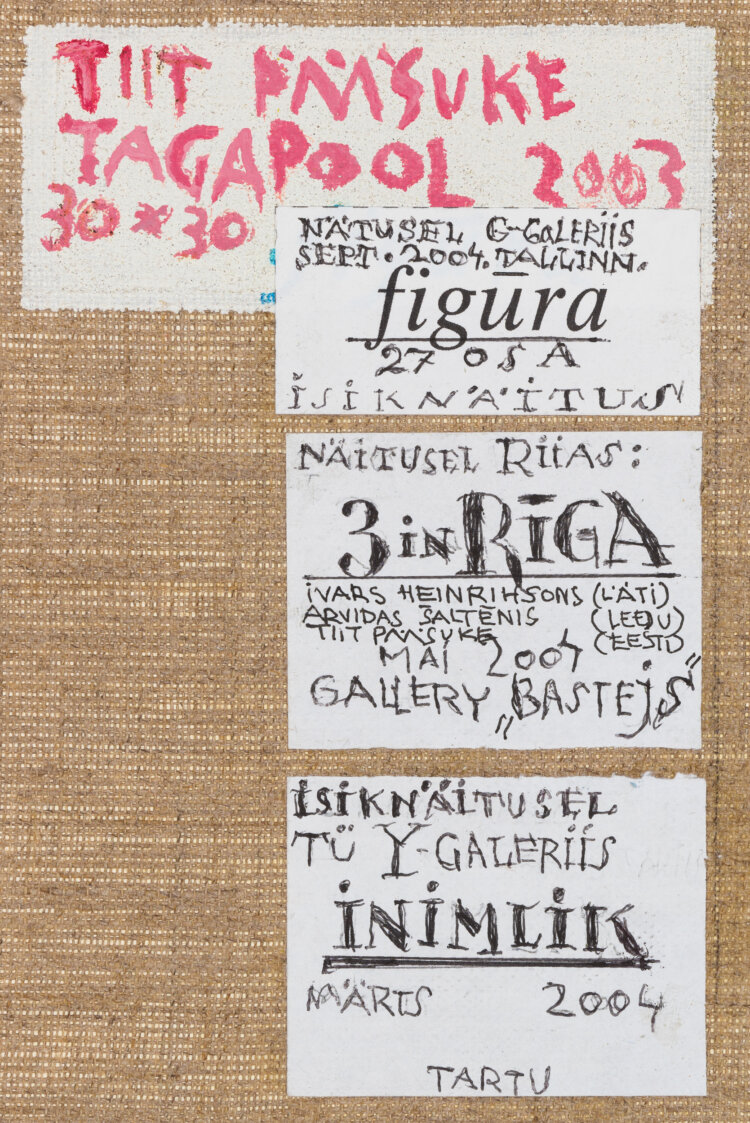 TIIT PÄÄSUKE
TAGAPOOL 2003
30 x 30
NÄTUSEL G-GALERIIS
SEPT. 2004. TALLINN.
figūra
27 OSA
ISIKNÄITUS
NÄITUSEL RIIAS:
3 in RĪGA
IVARS HEINRIHSONS (LÄTI)
ARVIDAS ŠALTENIS (LEEDU)
TIIT PÄÄSUKE (EESTI)
MAI 2004
GALLERY „BASTEJS"
ISIKNÄITUSEL
TÜ Y-GALERIIS
INIMLIK
MÄRTS 2004
TARTU